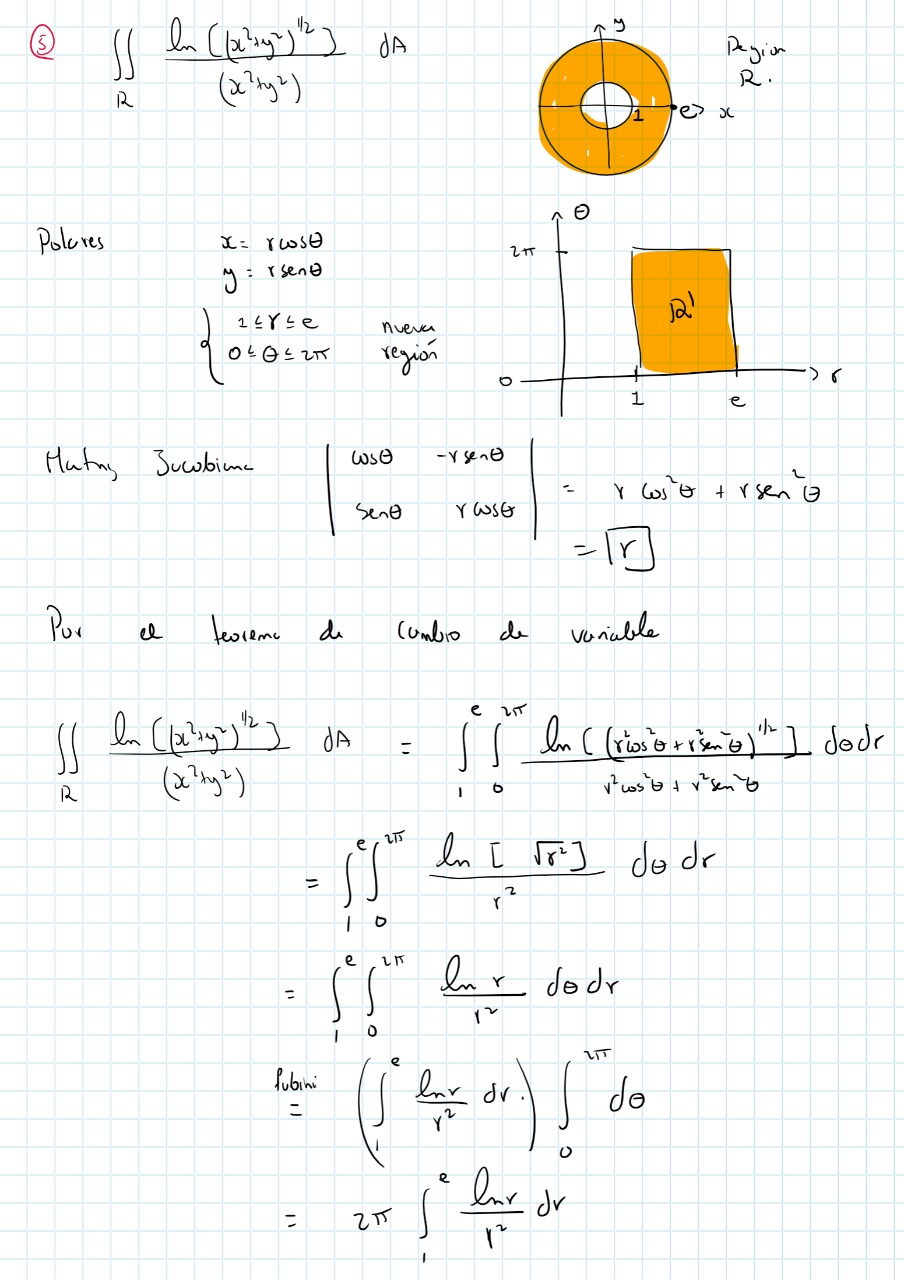 ⑤ ∬_R ln[(x²+y²)^{1/2}] / (x²+y²) dA
y
Region
R.
1 e x
θ
Polares x = r cosθ
y = r senθ
2π
1 ≤ r ≤ e nueva
0 ≤ θ ≤ 2π región
R'
0 r
1 e
Matriz Jacobiana | cosθ -r senθ | = r cos²θ + r sen²θ
| senθ r cosθ |
= r
Por el teorema de cambio de variable
∬_R ln[(x²+y²)^{1/2}] / (x²+y²) dA = ∫_1^e ∫_0^{2π} ln[(r²cos²θ + r²sen²θ)^{1/2}] / r²cos²θ + r²sen²θ dθ dr
= ∫_1^e ∫_0^{2π} ln[√r²] / r² dθ dr
= ∫_1^e ∫_0^{2π} ln r / r² dθ dr
fubini
= (∫_1^e ln r / r² dr.) ∫_0^{2π} dθ
= 2π ∫_1^e ln r / r² dr